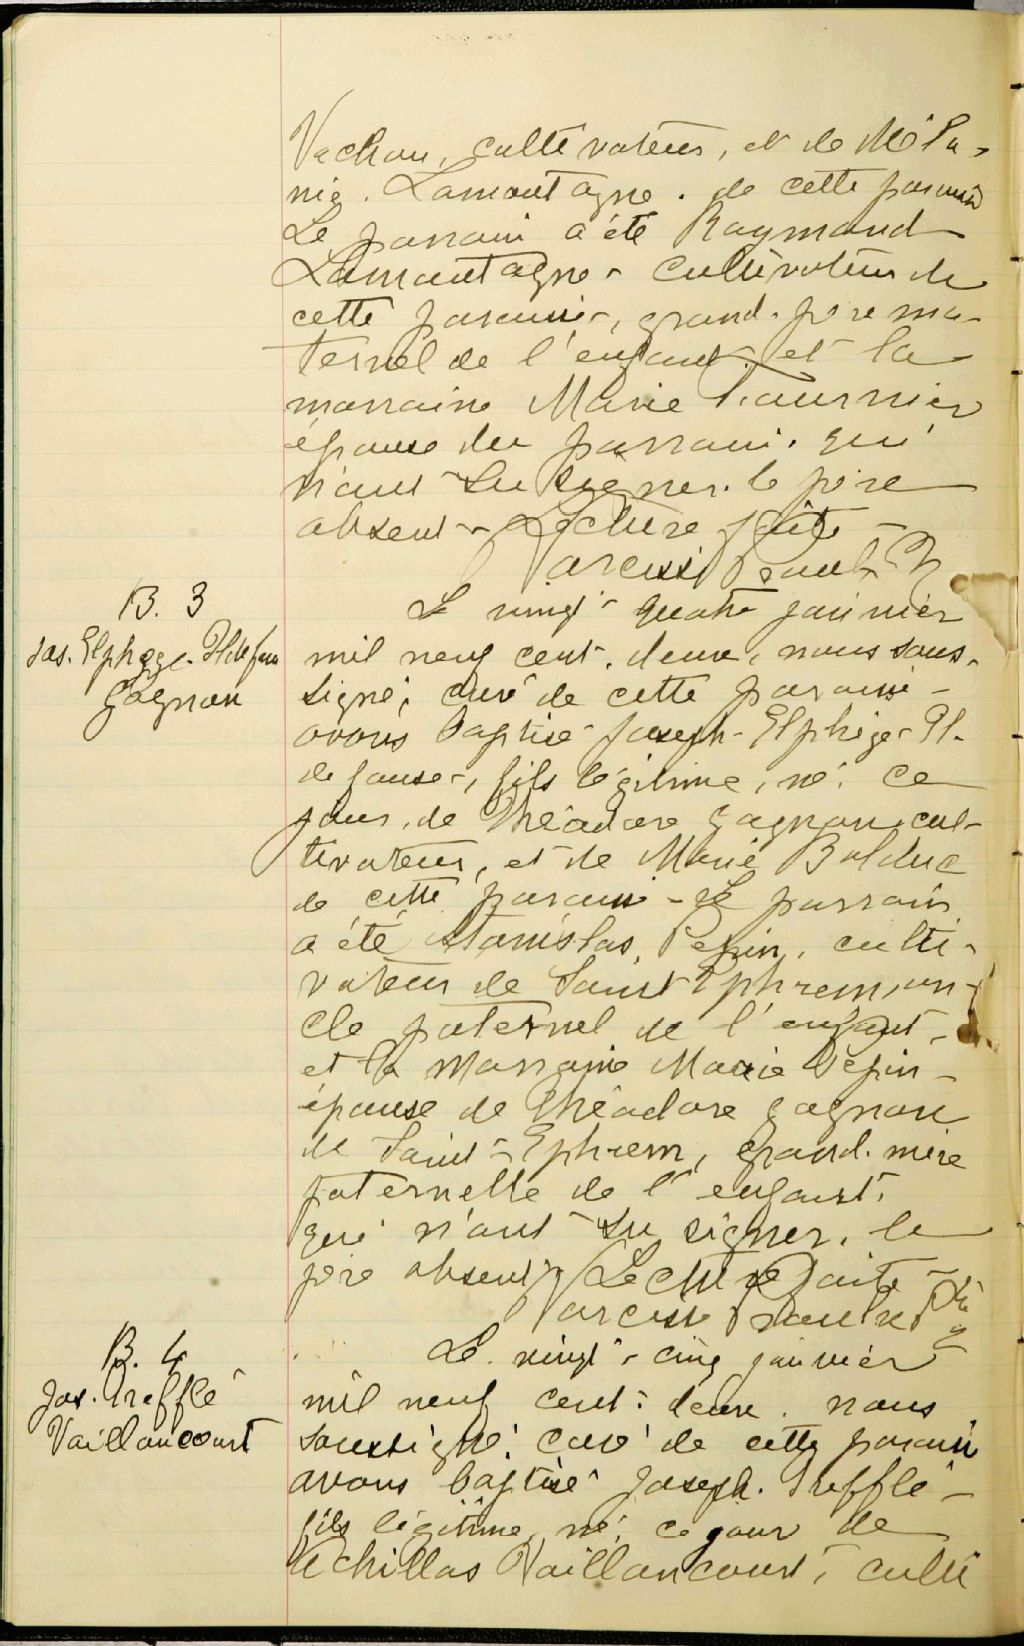 Vachon, cultivateur, et de Méla-
nie Lamontagne. de cette paroisse
Le parrain a été Raymond
Lamontagne - cultivateur de
cette paroisse -, grand-père ma-
ternel de l'enfant et la
marraine Marie Fournier
épouse du parrain. qui
n'ont su signer. le père
absent - Lecture faite -
Narcisse
B. 3
Jos. Elphège. Ildefonse
Gagnon
Le vingt-quatre janvier
mil neuf cent. deux, nous sous-
signé, curé de cette paroisse -
avons baptisé Joseph-Elphège-Il-
defonse-, fils légitime, né. ce
jour, de Théodore Gagnon cul-
tivateur, et de Marie Bolduc
de cette paroisse - Le parrain
a été Stanislas Pépin, culti-
vateur de Saint-Ephrem, on-
cle paternel de l'enfant -
et la marraine Marie Pépin -
épouse de Théodore Gagnon
de Saint-Ephrem, grand-mère
paternelle de l'enfant.
qui n'ont su signer, le
père absent - Lecture faite -
Narcisse
B. 4
Jos. Trefflé
Vaillancourt
Le vingt-cinq janvier
mil neuf cent. deux. nous
soussigné. curé de cette paroisse
avons baptisé Joseph. Trefflé -
fils légitime, né. ce jour de
Achillas Vaillancourt, culti